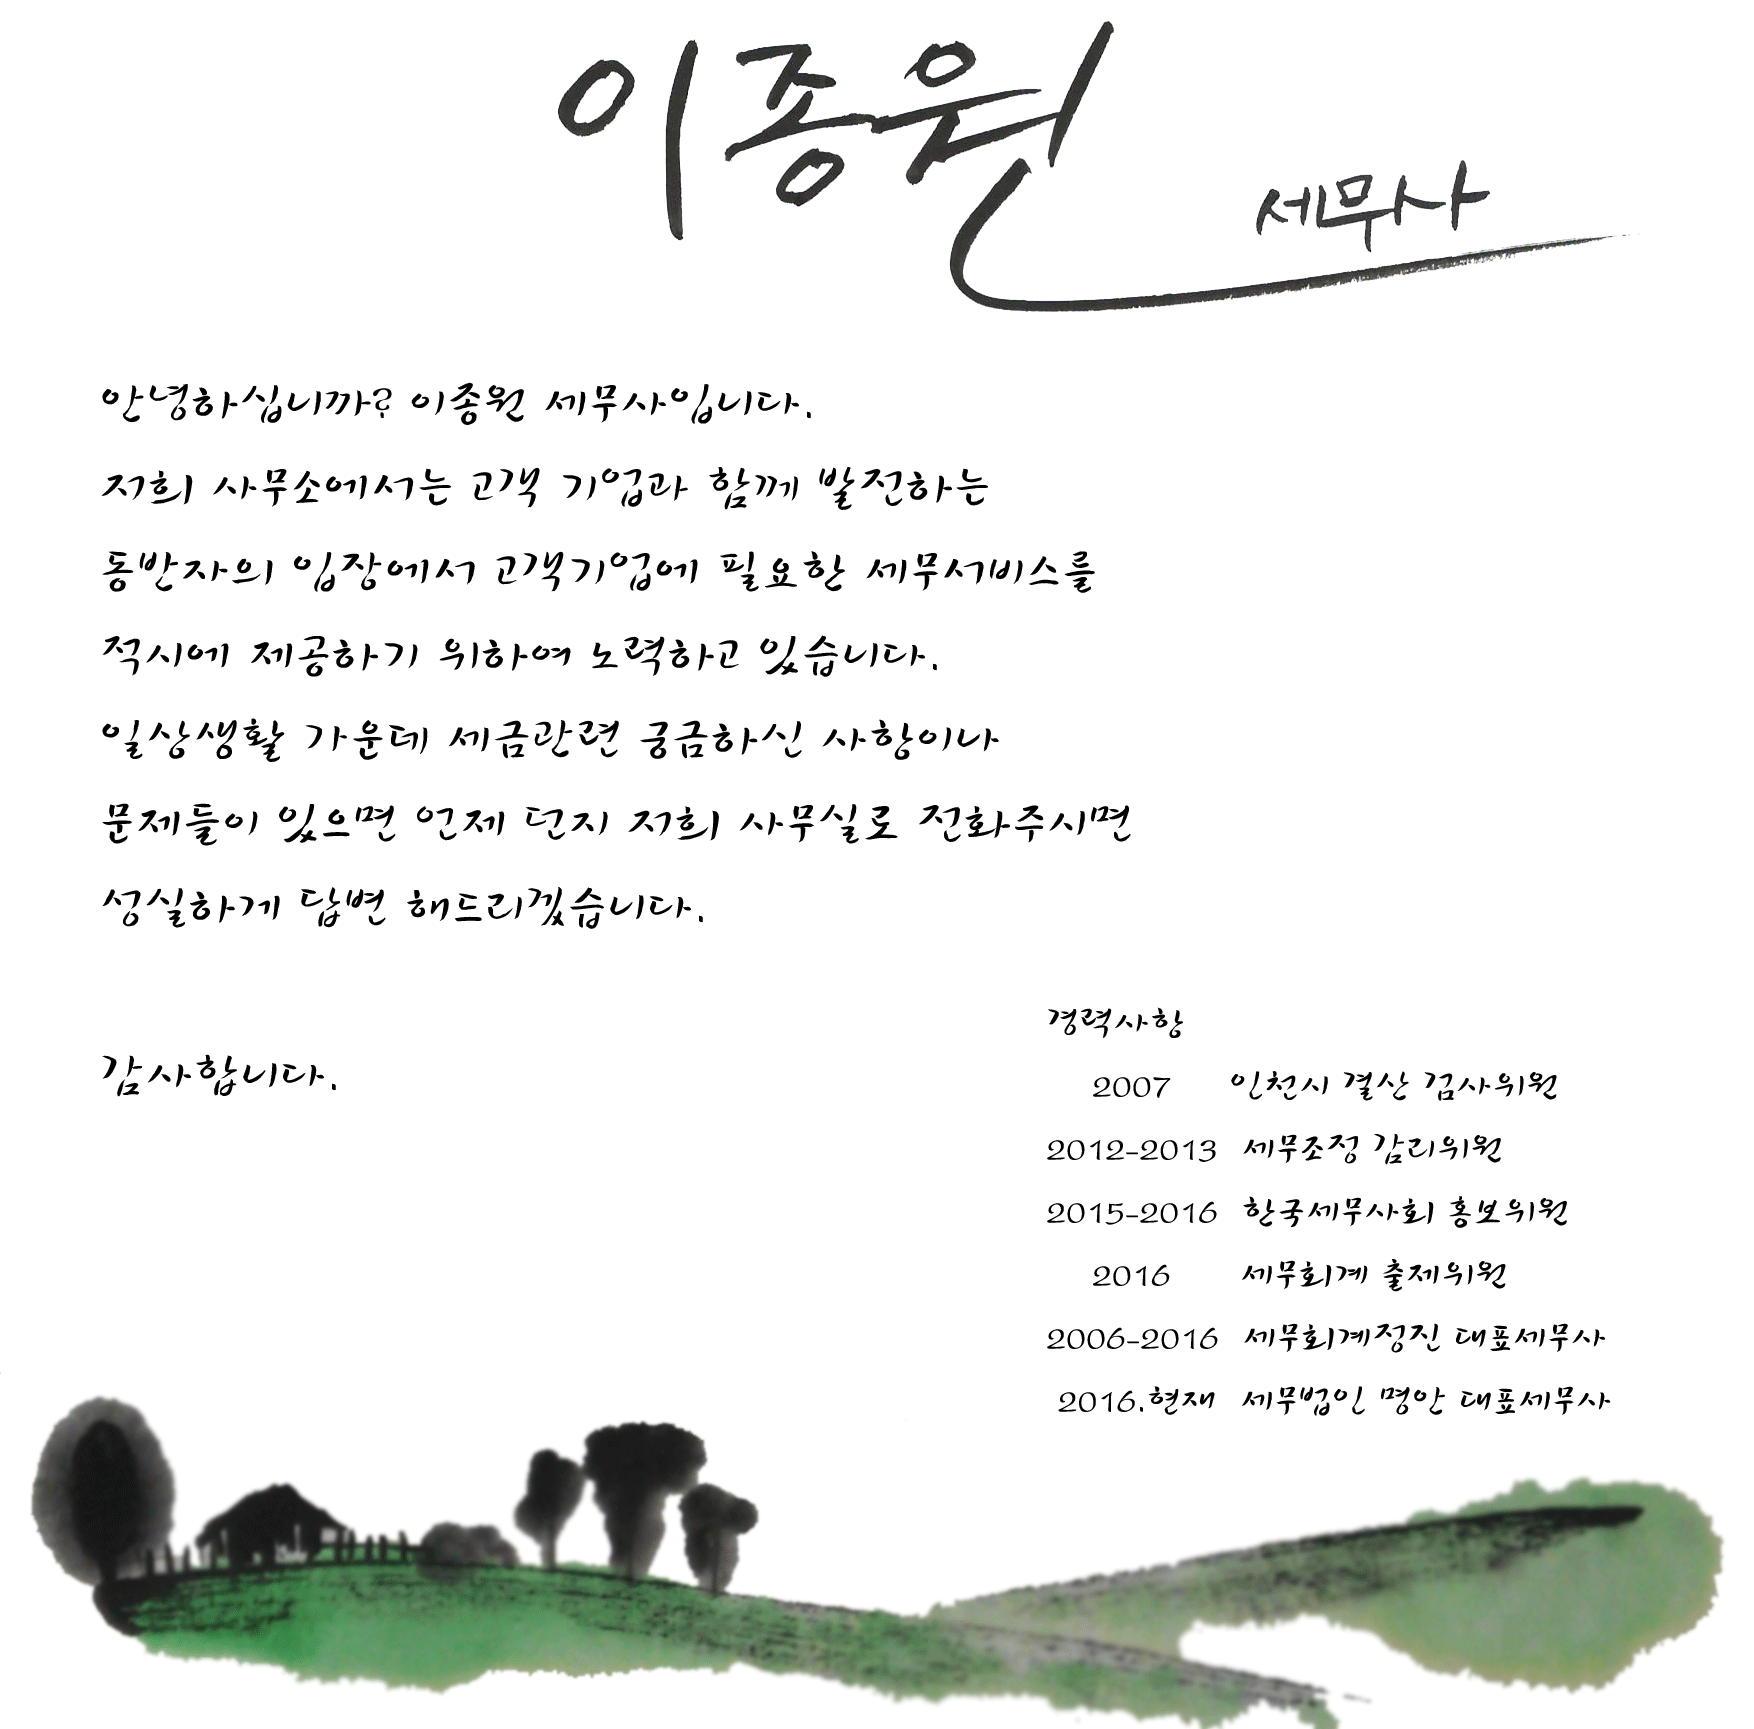 이종원
세무사
안녕하십니까? 이종원 세무사입니다.
저희 사무소에서는 고객 기업과 함께 발전하는
동반자의 입장에서 고객기업에 필요한 세무서비스를
적시에 제공하기 위하여 노력하고 있습니다.
일상생활 가운데 세금관련 궁금하신 사항이나
문제들이 있으면 언제 던지 저희 사무실로 전화주시면
성실하게 답변 해드리겠습니다.
감사합니다.
경력사항
2007 인천시 결산 검사위원
2012-2013 세무조정 감리위원
2015-2016 한국세무사회 홍보위원
2016 세무회계 출제위원
2006-2016 세무회계정진 대표세무사
2016.현재 세무법인 명안 대표세무사